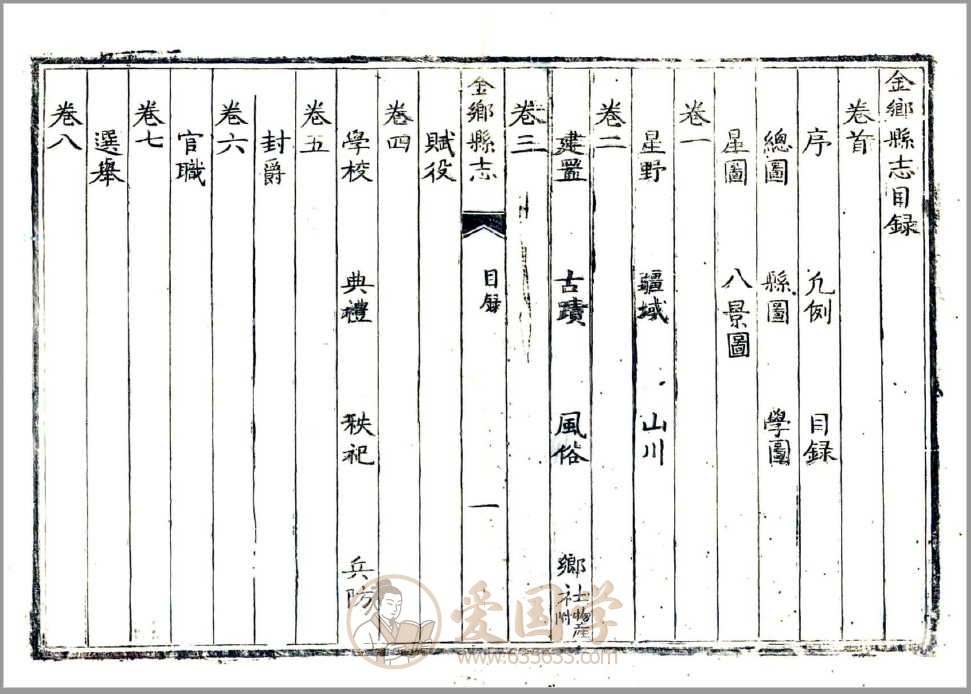 金鄉縣志目録
卷首
序 凡例 目録
總圖 縣圖 學圖
星圖 八景圖
卷一
星野 疆域 山川
卷二
建置 古蹟 風俗 鄉社 物産附
卷三
金鄉縣志 目録 一
賦役
卷四
學校 典禮 秩祀 兵防
卷五
封爵
卷六
官職
卷七
選舉
卷八
爱国学
www.635633.com